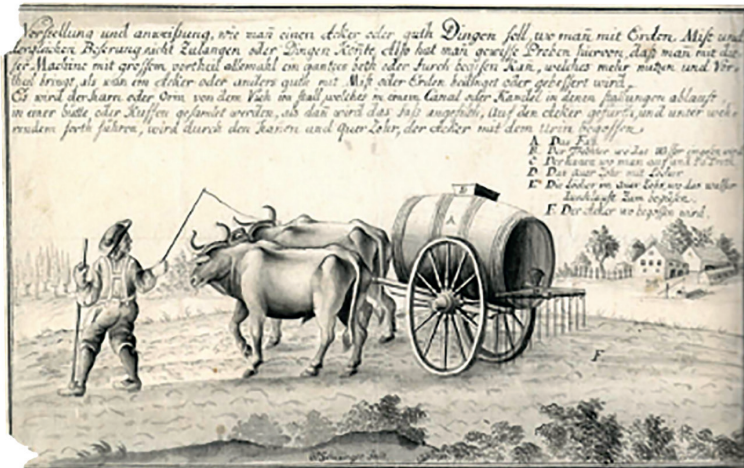 Vorstellung und anweißung, wie man einen Acker oder guth Dingen soll, wo man mit Erden, Mist und
dergleichen Beserung nicht Zulangen oder Dingen Könte, Also hat man gewisse Proben hiervon, daß man mit die-
ser Machine mit grossem vortheil allemahl ein gantzes beth oder furch begisen Kan, welches mehr nutzen und Vor-
theil bringt, als wan ein Acker oder anders guth mit Mist oder Erden bedinget oder gebessert wird.
Es wird der harn oder Orin von dem Vieh im stall, welches in einem Canal oder Kandel in denen stallungen ablauft,
in einer bütte oder Kuffen gesamlet werden, als dan wird das fass angefült, Auf den Acker gefürth, und unter weh-
rendem forth führen, wird durch den Hanen und Quer Rohr, der Acker mit dem Urin begossen.
A Das Faß
B. Der Trichter wo das Wasser eingeben wird
C Der hanen wo man auf und Zu
D. Das quer Rohr mit Löcher
E. Die Löcher im quer Rohr, wo das wasser
durchlauft Zum begisen.
F. Der Acker wo begossen wird.
B
A
F